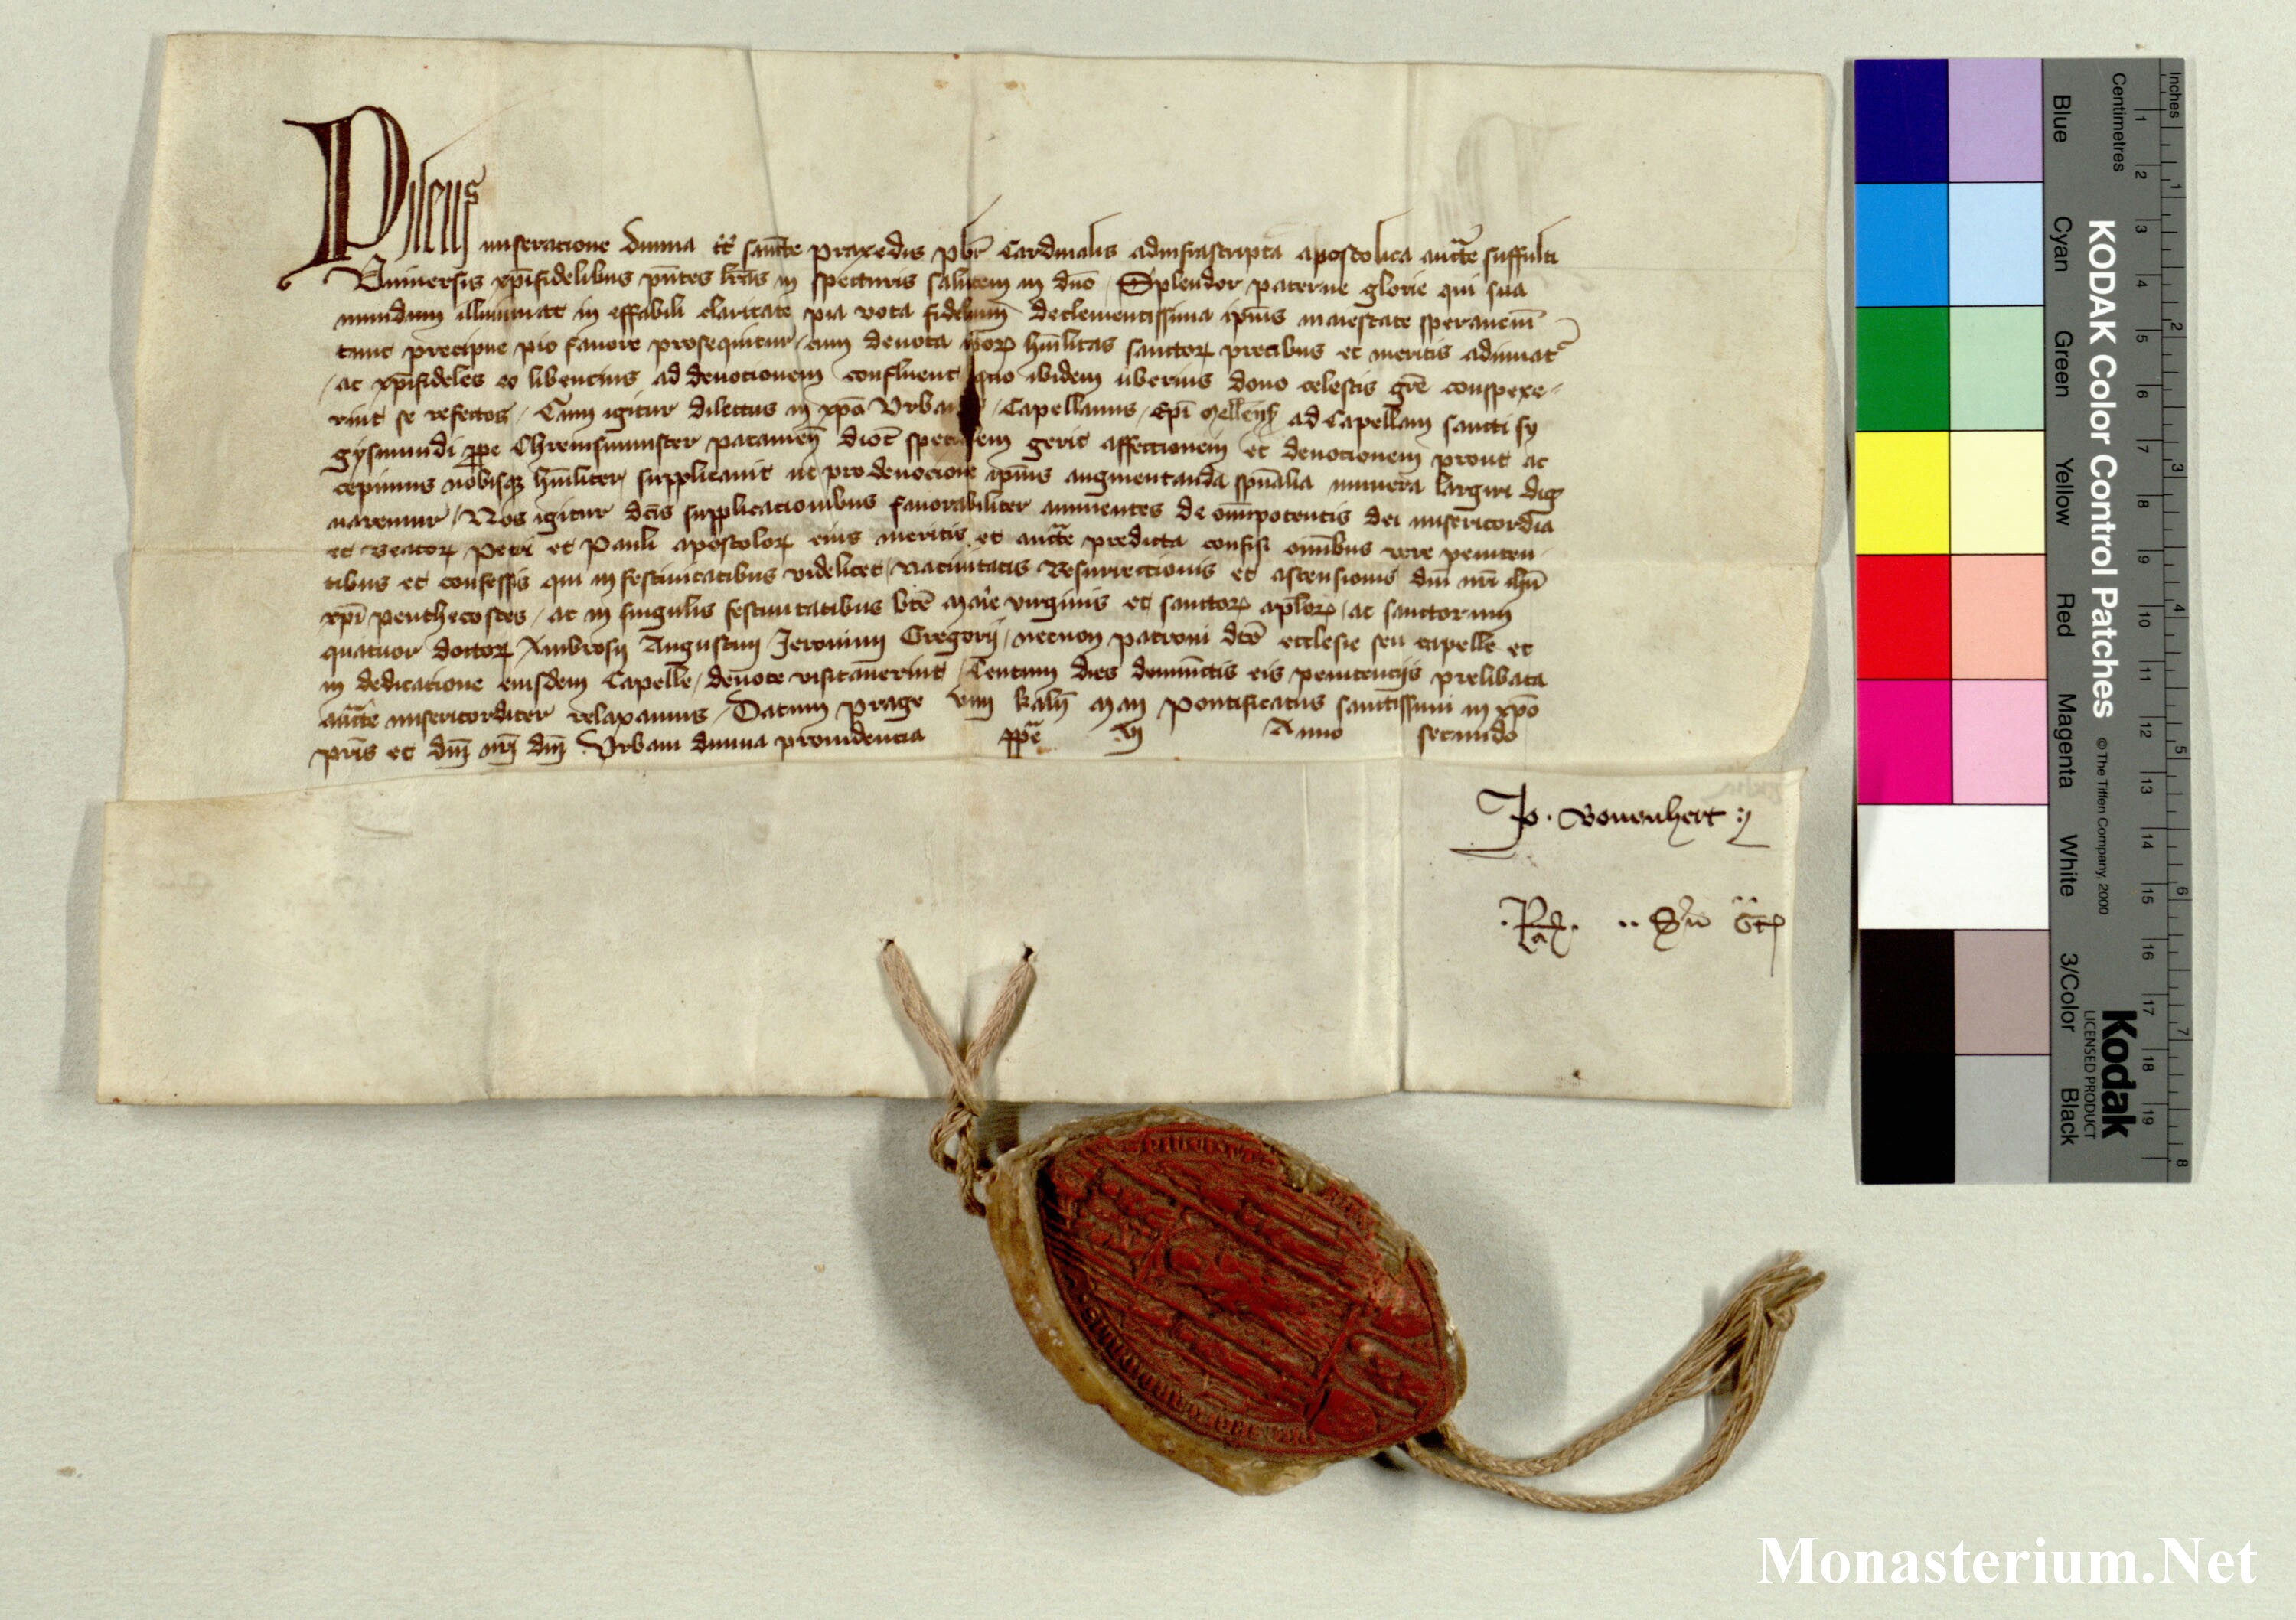 Pileus miseracione diuina tt̄ sancte praxedis pbr̄ Cardinalis ad infrascripta apostolica auctᵃte suffulti
Vniuersis xp̄ifidelibus pn̄tes lrās in specturis salutem in dnō Splendor paterne glorie qui sua
mundum illuminat in effabili claritate pia vota fidelium declementissima ip̄ius maiestate sperancium̄
tunc precipue pio fauore prosequitur / cum deuota ip̄orꝝ hūilitas sanctorꝝ precibus et meritis adiuuatᷣ
/ ac xp̄ifideles eo libencius ad deuocionem confluent quo ibidem uberius dono celestis grē conspexe-
rint se refectos / Cum igitur dilectus in xpō Vrba / Capellanus / Ep̄i ad Capellam sancti sy
gysmundi ꝓpe Chremsmunster patauien̄ dioc̄ specialem gerit affectionem et deuocionem prout ac
cepimus nobisqꝫ hūiliter supplicauit ut pro deuocione ip̄ius augmentanda spūalia munera largiri dig
naremur / Nos igitur dc̄is supplicacionibus fauorabiliter annuentes de om̄ipotentis dei misericordia
et beatorꝝ Petri et Pauli apostolorꝝ eius meritis et auctᵃte predicta confisi om̄ibus vere peniten
tibus et confessis qui in festiuitatibus videlicet / Natiuitatis Resurrectionis et ascensionis dn̄i nr̄i ihū
xp̄i penthecostes / ac in singulis festiuitatibus btē Marie virginis et sanctorꝝ apl̄orꝝ / ac sanctorum
quatuor doctorꝝ Ambrosij Augustini Jeronimi Gregorij / necnon patroni dc̄e ecclesie seu capelle et
in dedicatione eiusdem Capelle / deuote visitauerint / Centum dies deiniūctis eis penitencijs prelibata
auctᵃte misericorditer relaxamus / Datum Prage viij kaln̄ Maij Pontificatus sanctissimi in xpō
pr̄is et dn̄i nr̄i dn̄i Vrbani diuina prouidencia pp̄e Vj Anno secundo
Jo. Bouenhert
.Rᵃ.
KODAK Color Control Patches
© The Tiffen Company, 2000
Kodak
LICENSED PRODUCT
Blue Cyan Green Yellow Red Magenta White 3/Color Black
Centimetres 1 2 3 4 5 6 7 8 9 10 11 12 13 14 15 16 17 18 19
Inches 1 2 3 4 5 6 7 8
Monasterium.Net